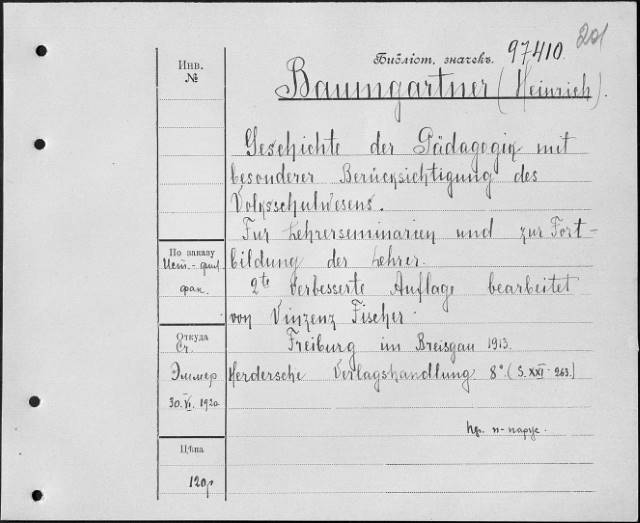 201
Библіот. значекъ. 97410
Инв.
№
Baumgartner (Heinrich).
Geschichte der Pädagogik mit
besonderer Berücksichtigung des
Volksschulwesens.
Fur Lehrerseminarien und zur Fort-
bildung der Lehrer.
2te Verbesserte Auflage bearbeitet
von Vinzenz Fischer.
Freiburg im Breisgau 1913.
Herdersche Verlagshandlung 8° (S. XXI - 263.)
По заказу
Ист. - фил.
фак.
Откуда
Ст.
Эммер
30. VI. 1920
Цѣна
120р